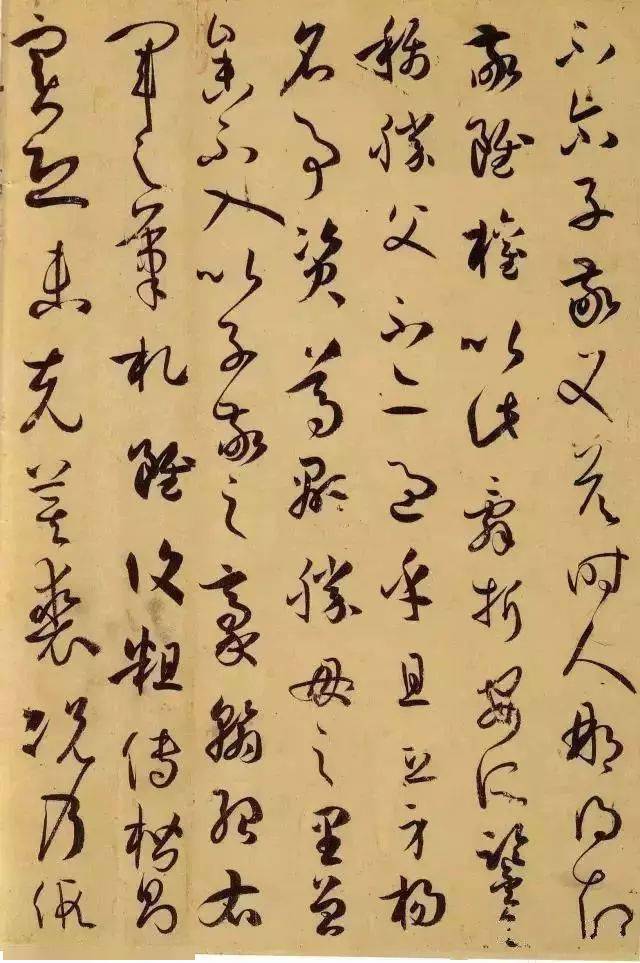 不尒子敬又荅時人那得知
敬雖權以此辭折安所鑒自
稱勝父不亦過乎且立身揚
名事資尊顯勝母之里曾
參不入以子敬之豪翰紹右
軍之筆札雖復粗傳楷則
實恐未克箕裘況乃假